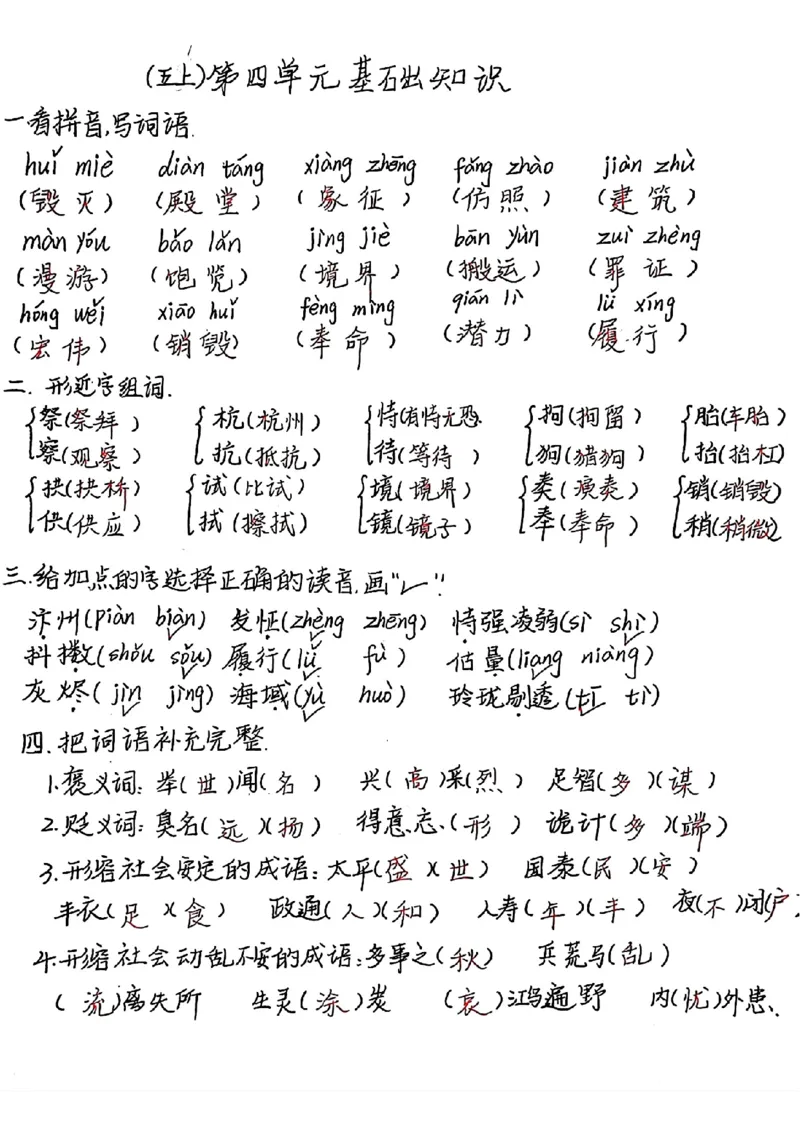 (五上)第四单元基础知识
一.看拼音,写词语.
huǐ miè diàn táng xiàng zhēng fǎng zhào jiàn zhù
(毁灭) (殿堂) (象征) (仿照) (建筑)
màn yóu bǎo lǎn jìng jiè bān yùn zuì zhèng
(漫游) (饱览) (境界) (搬运) (罪证)
hóng wěi xiāo huǐ fèng mìng qián lì lǚ xíng
(宏伟) (销毁) (奉命) (潜力) (履行)
二.形近字组词.
祭(祭拜) 杭(杭州) 恃(有恃无恐 拘(拘留) 胎(车胎)
察(观察) 抗(抵抗) 待(等待) 狗(猪狗) 抬(抬杠)
拱(拱桥) 试(比试) 境(境界) 奏(演奏) 销(销毁)
供(供应) 拭(擦拭) 镜(镜子) 奉(奉命) 稍(稍微)
三.给加点的字选择正确的读音,画“✓”!
汴州(piàn biàn) 发怔(zhèng zhēng) 恃强凌弱(sì shì)
抖擞(shǒu sǒu) 履行(lǚ fù) 估量(liang niàng)
灰烬(jìn jìng) 海域(yù huò) 玲珑剔透(tī tì)
四.把词语补充完整.
1.褒义词:举(世)闻(名) 兴(高)采(烈) 足智(多)(谋)
2.贬义词:臭名(远)(扬) 得意忘(形) 诡计(多)(端)
3.形容社会安定的成语:太平(盛)(世) 国泰(民)(安)
丰衣(足)(食) 政通(人)(和) 人寿(年)(丰) 夜(不)闭(户)
4.形容社会动乱不安的成语:多事之(秋) 兵荒马(乱)
(流)离失所 生灵(涂)炭 (哀)鸿遍野 内(忧)外患.